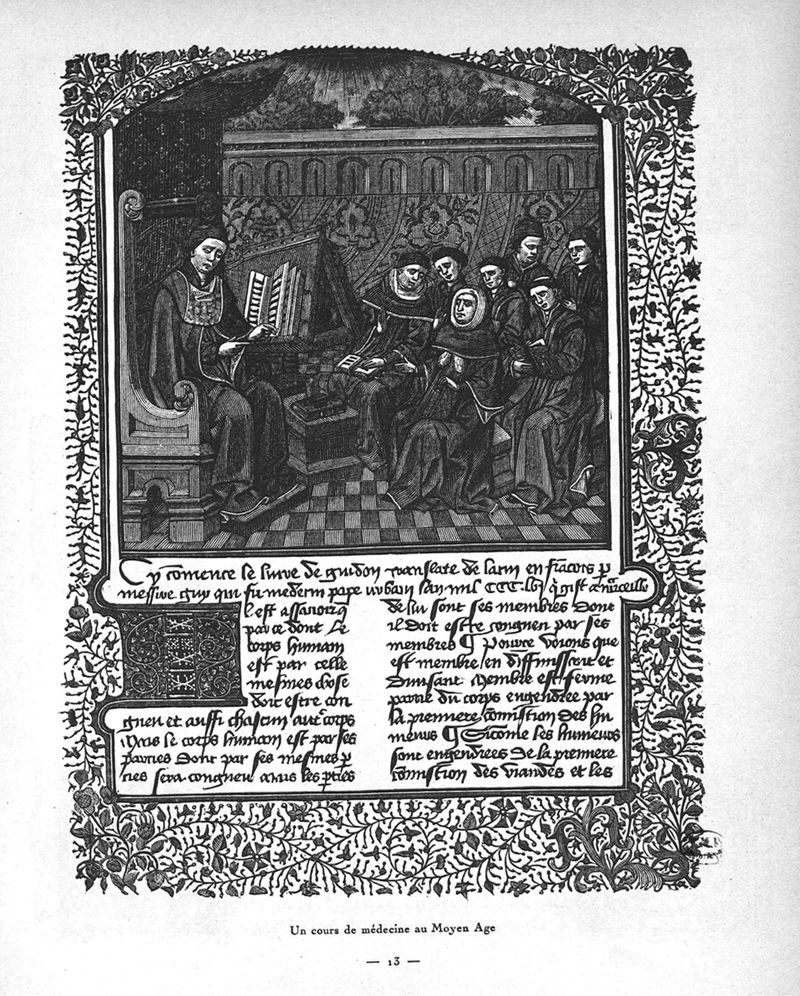 Cy comence le livre de guidon translate de latin en francois p
messire guy qui fu medecin pape urban lan mil CCC. q gist a marceille
l est assavoir q
par ce dont Le
corps humain
est par celle
mesmes chose
doit estre con
gneu et aussi chascun autr corps
Mais le corps humain est par ses
parties Dont par ses mesmes p
ties sera congneu Mais les pties
de lui sont ses membres Dont
il doit estre congneu par ses
membres ¶ Pource voions que
est membre en diffinissent et
Disant Membre est ferme
partie du corps engendree par
la premiere comistion des hu
meurs ¶ Sicome les humeurs
sont engendrees de la premiere
comistion des viandes et les
Un cours de médecine au Moyen Age
— 13 —